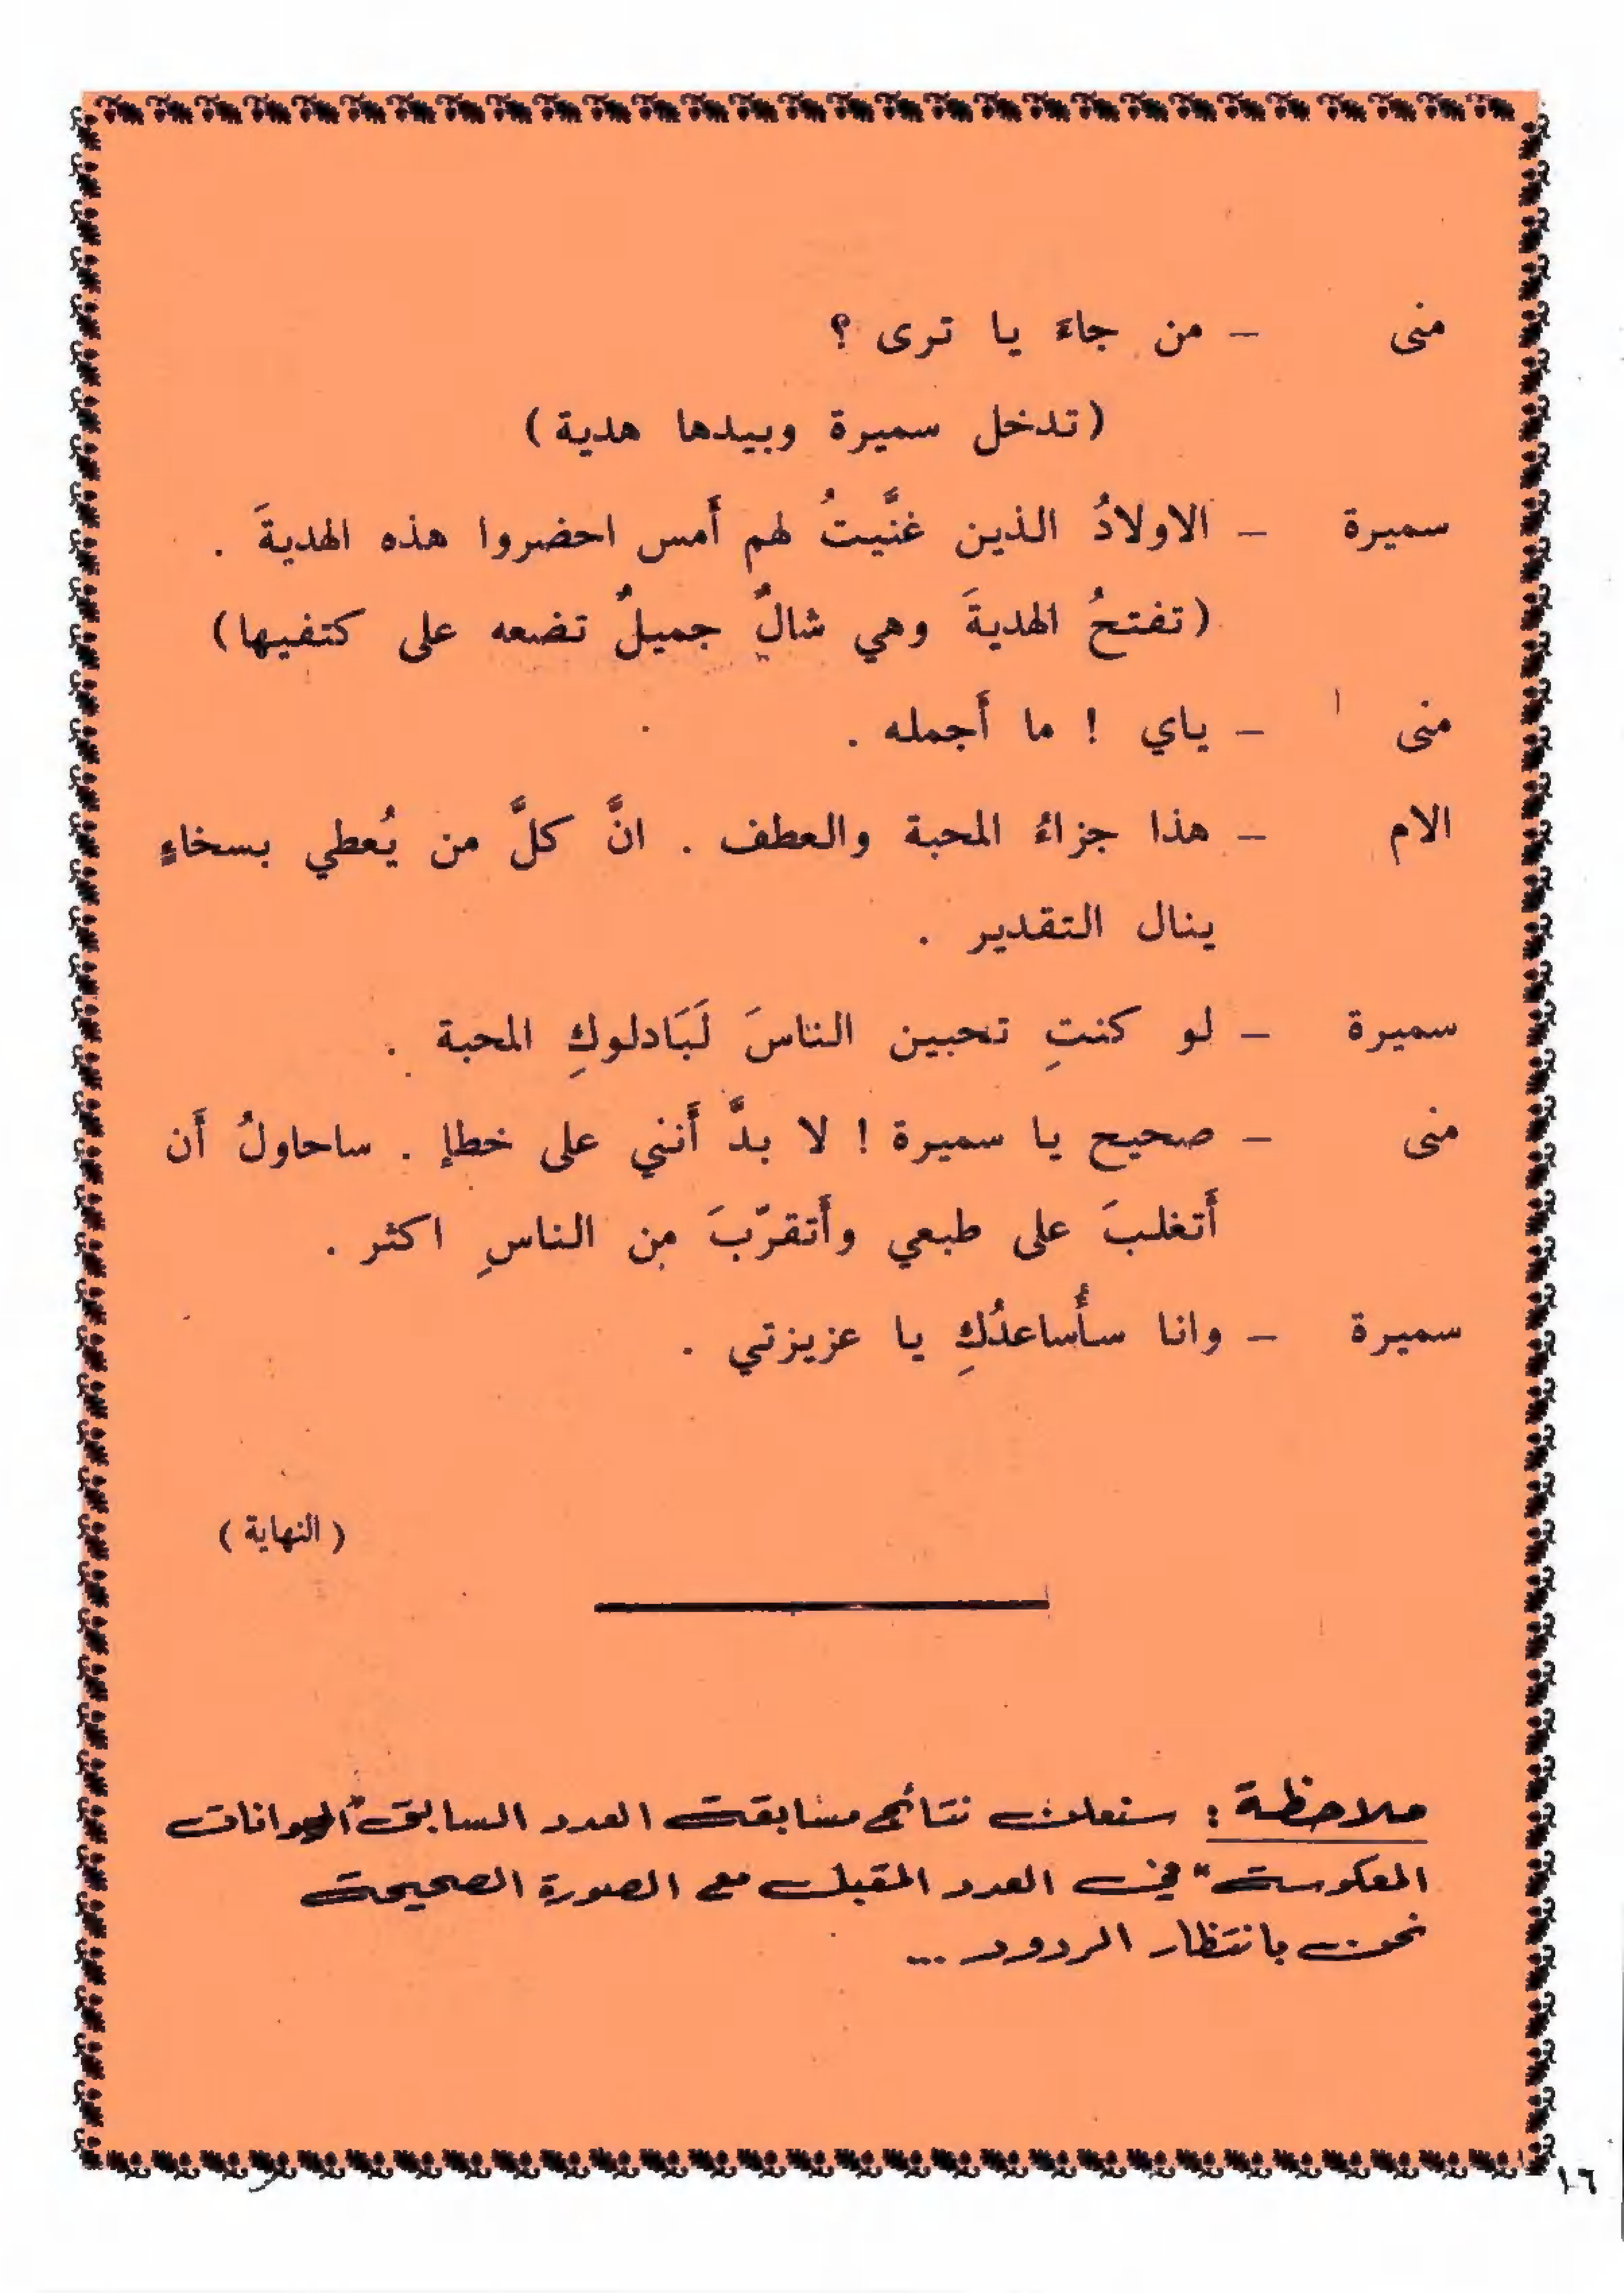 منى – من جاءَ يا ترى ؟
(تدخل سميرة وبيدها هدية)
سميرة – الاولادُ الذين غنَّيتُ لهم أَمس احضروا هذه الهديةَ .
(تفتحُ الهديةَ وهي شالٌ جميلٌ تضعه على كتفيها)
منى – ياي ! ما أَجمله .
الام – هذا جزاءُ المحبة والعطف . انَّ كلَّ من يُعطي بسخاءٍ
ينال التقدير .
سميرة – لو كنتِ تحبين الناسَ لَبَادلوكِ المحبة .
منى – صحيح يا سميرة ! لا بدَّ أَنني على خطإ . ساحاولُ أَن
أَتغلبَ على طبعي وأَتقرّبَ من الناسِ اكثر .
سميرة – وانا سأُساعدُكِ يا عزيزتي .
(النهاية)
ملاحظة : ستعلن نتائج مسابقة العدد السابق "الحيوانات
المعكوسة" في العدد المقبل مع الصورة الصحيحة
نحن بانتظار الردود ...
١٦